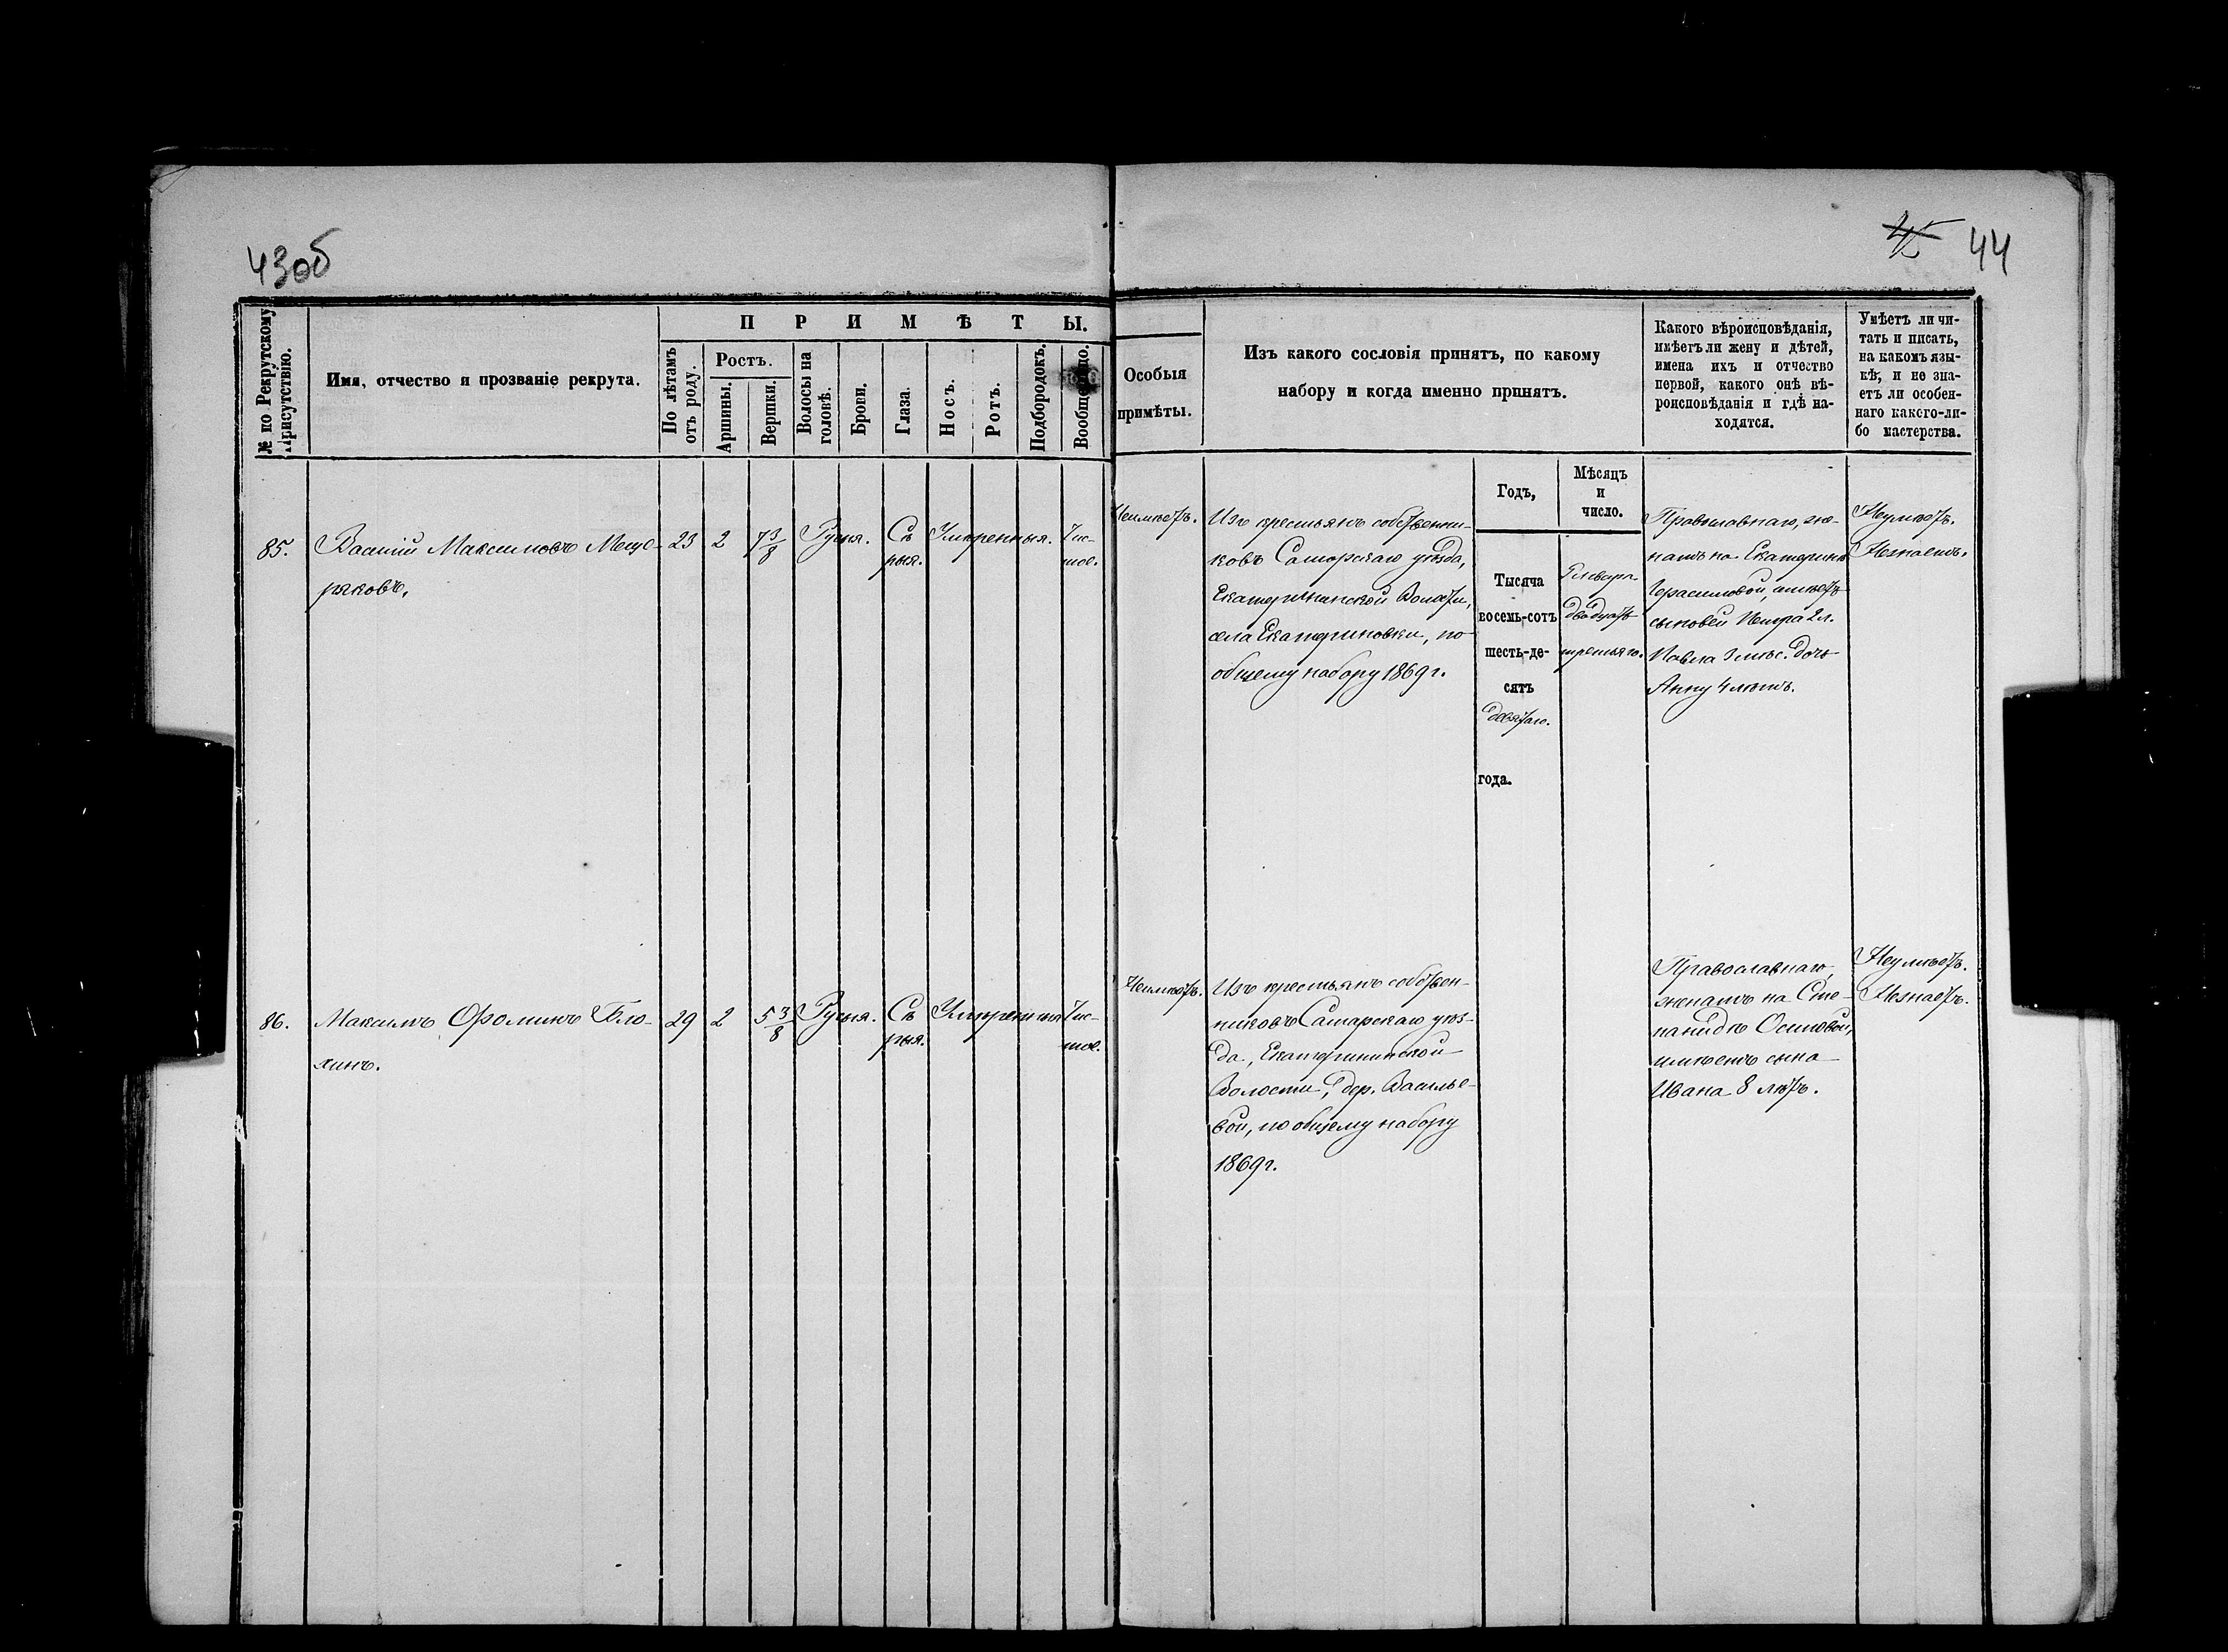 43об
45 44
№ по Рекрутскому Присутствію.
Имя, отчество и прозваніе рекрута.
ПРИМѢТЫ.
По лѣтамъ отъ роду.
Ростъ.
Аршины.
Вершки.
Волосы на головѣ.
Брови.
Глаза.
Носъ.
Ротъ.
Подбородокъ.
Вообще лицо.
Особыя
примѣты.
Изъ какого сословія принятъ, по какому
набору и когда именно принятъ.
Какого вѣроисповѣданія,
имѣетъ ли жену и дѣтей,
имена ихъ и отчество
первой, какого онѣ вѣ-
роисповѣданія и гдѣ на-
ходятся.
Умѣетъ ли чи-
тать и писать,
на какомъ язы-
кѣ, и не зна-
етъ ли особен-
наго какого-ли-
бо мастерства.
Годъ,
Мѣсяцъ
и
число.
85.
Василій Максимовъ Меще-
ряковъ.
23
2
7 3/8
Русыя.
Сѣ
рыя.
Умѣренныя.
Чис-
тое.
Неимѣетъ.
Изъ крестьянъ собственни-
ковъ Самарскаго уѣзда,
Екатерининской Волости,
села Екатериновки, по
общему набору 1869 г.
Тысяча
восемь-сотъ
шесть-де-
сятъ
девятаго.
года.
Генваря
двадцать
третьяго.
Православнаго, же-
натъ на Екатеринѣ
Герасимовой, имѣетъ
сыновей Петра 2 л.
Павла 3 мѣс. дочь
Анну 4 лѣтъ.
Неумѣетъ.
Незнаетъ.
86.
Максимъ Фоминъ Бло-
хинъ.
29
2
5 3/8
Русыя.
Сѣ
рыя.
Умѣренныя
Чис-
тое.
Неимѣетъ.
Изъ крестьянъ собствен-
никовъ Самарскаго уѣз-
да, Екатерининской
Волости, дер. Василье-
вой, по общему набору
1869 г.
Православнаго,
женатъ на Сте-
панидѣ Осиповой,
имѣетъ сына
Ивана 8 лѣтъ.
Неумѣетъ.
Незнаетъ.